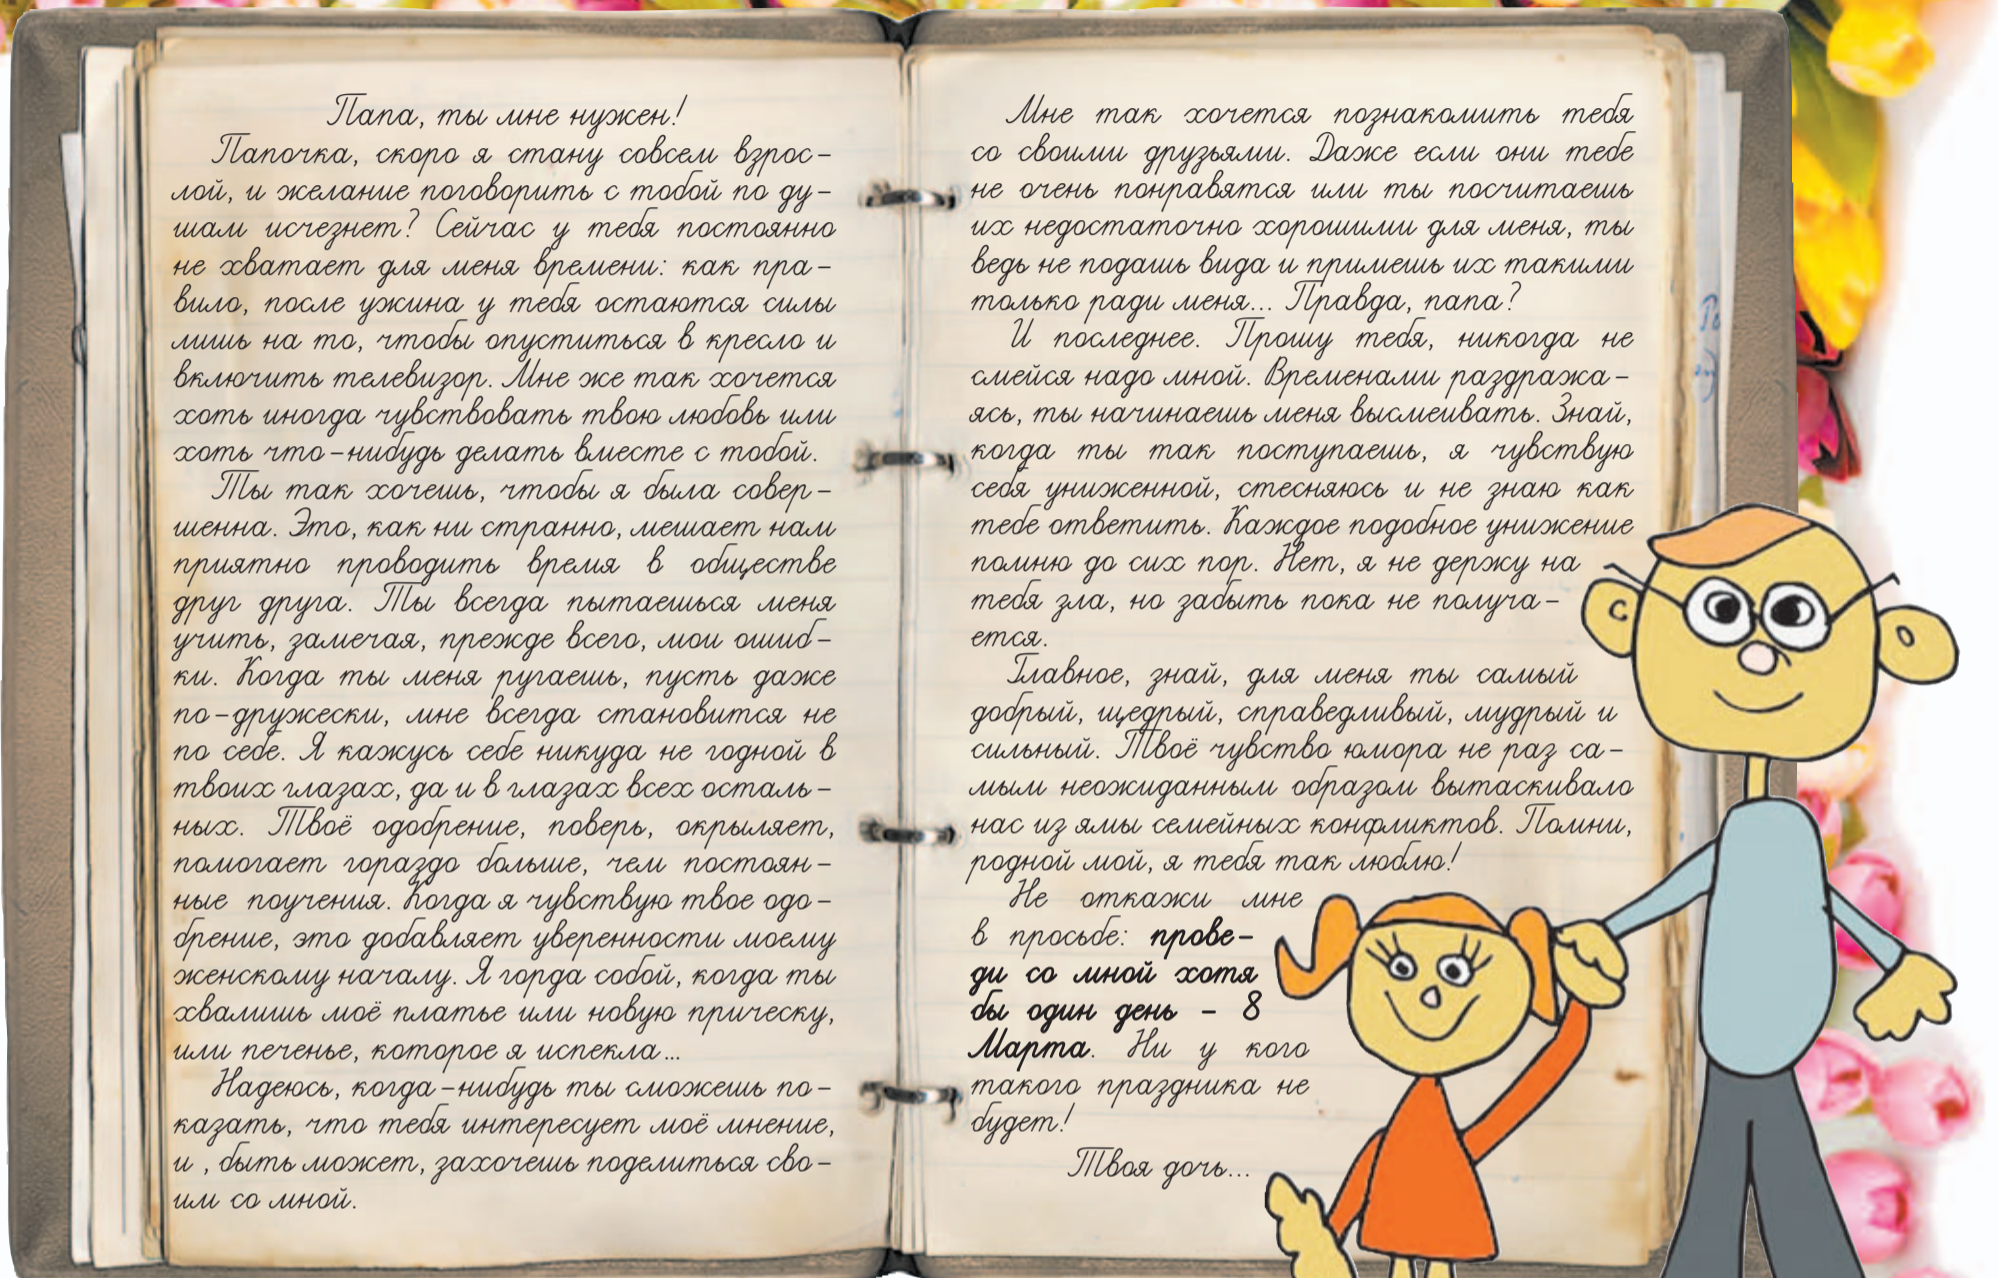 Папа, ты мне нужен!
Папочка, скоро я стану совсем взрос-
лой, и желание поговорить с тобой по ду-
шам исчезнет? Сейчас у тебя постоянно
не хватает для меня времени: как пра-
вило, после ужина у тебя остаются силы
лишь на то, чтобы опуститься в кресло и
включить телевизор. Мне же так хочется
хоть иногда чувствовать твою любовь или
хоть что-нибудь делать вместе с тобой.
Ты так хочешь, чтобы я была совер-
шенна. Это, как ни странно, мешает нам
приятно проводить время в обществе
друг друга. Ты всегда пытаешься меня
учить, замечая, прежде всего, мои ошиб-
ки. Когда ты меня ругаешь, пусть даже
по-дружески, мне всегда становится не
по себе. Я кажусь себе никуда не годной в
твоих глазах, да и в глазах всех осталь-
ных. Твоё одобрение, поверь, окрыляет,
помогает гораздо больше, чем постоян-
ные поучения. Когда я чувствую твое одо-
брение, это добавляет уверенности моему
женскому началу. Я горда собой, когда ты
хвалишь моё платье или новую прическу,
или печенье, которое я испекла...
Надеюсь, когда-нибудь ты сможешь по-
казать, что тебя интересует моё мнение,
и , быть может, захочешь поделиться сво-
им со мной.
Мне так хочется познакомить тебя
со своими друзьями. Даже если они тебе
не очень понравятся или ты посчитаешь
их недостаточно хорошими для меня, ты
ведь не подашь вида и примешь их такими
только ради меня... Правда, папа?
И последнее. Прошу тебя, никогда не
смейся надо мной. Временами раздража-
ясь, ты начинаешь меня высмеивать. Знай,
когда ты так поступаешь, я чувствую
себя униженной, стесняюсь и не знаю как
тебе ответить. Каждое подобное унижение
помню до сих пор. Нет, я не держу на
тебя зла, но забыть пока не получа-
ется.
Главное, знай, для меня ты самый
добрый, щедрый, справедливый, мудрый и
сильный. Твоё чувство юмора не раз са-
мым неожиданным образом вытаскивало
нас из ямы семейных конфликтов. Помни,
родной мой, я тебя так люблю!
Не откажи мне
в просьбе: прове-
ди со мной хотя
бы один день - 8
Марта. Ни у кого
такого праздника не
будет!
Твоя дочь...